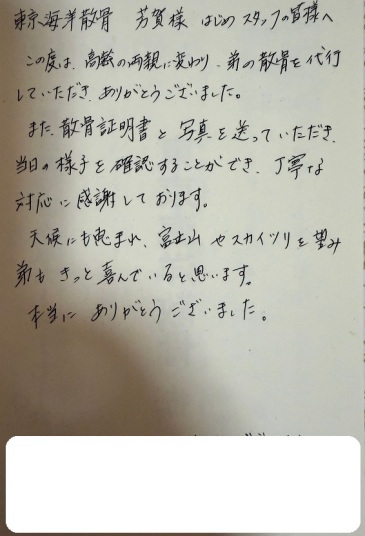 東京海洋散骨 芳賀様 はじめスタッフの皆様へ
この度は、高齢の両親に変わり、弟の散骨を代行
していただき、ありがとうございました。
また、散骨証明書と写真を送っていただき、
当日の様子を確認することができ、丁寧な
対応に感謝しております。
天候にも恵まれ、富士山やスカイツリを望み
弟もきっと喜んでいると思います。
本当にありがとうございました。